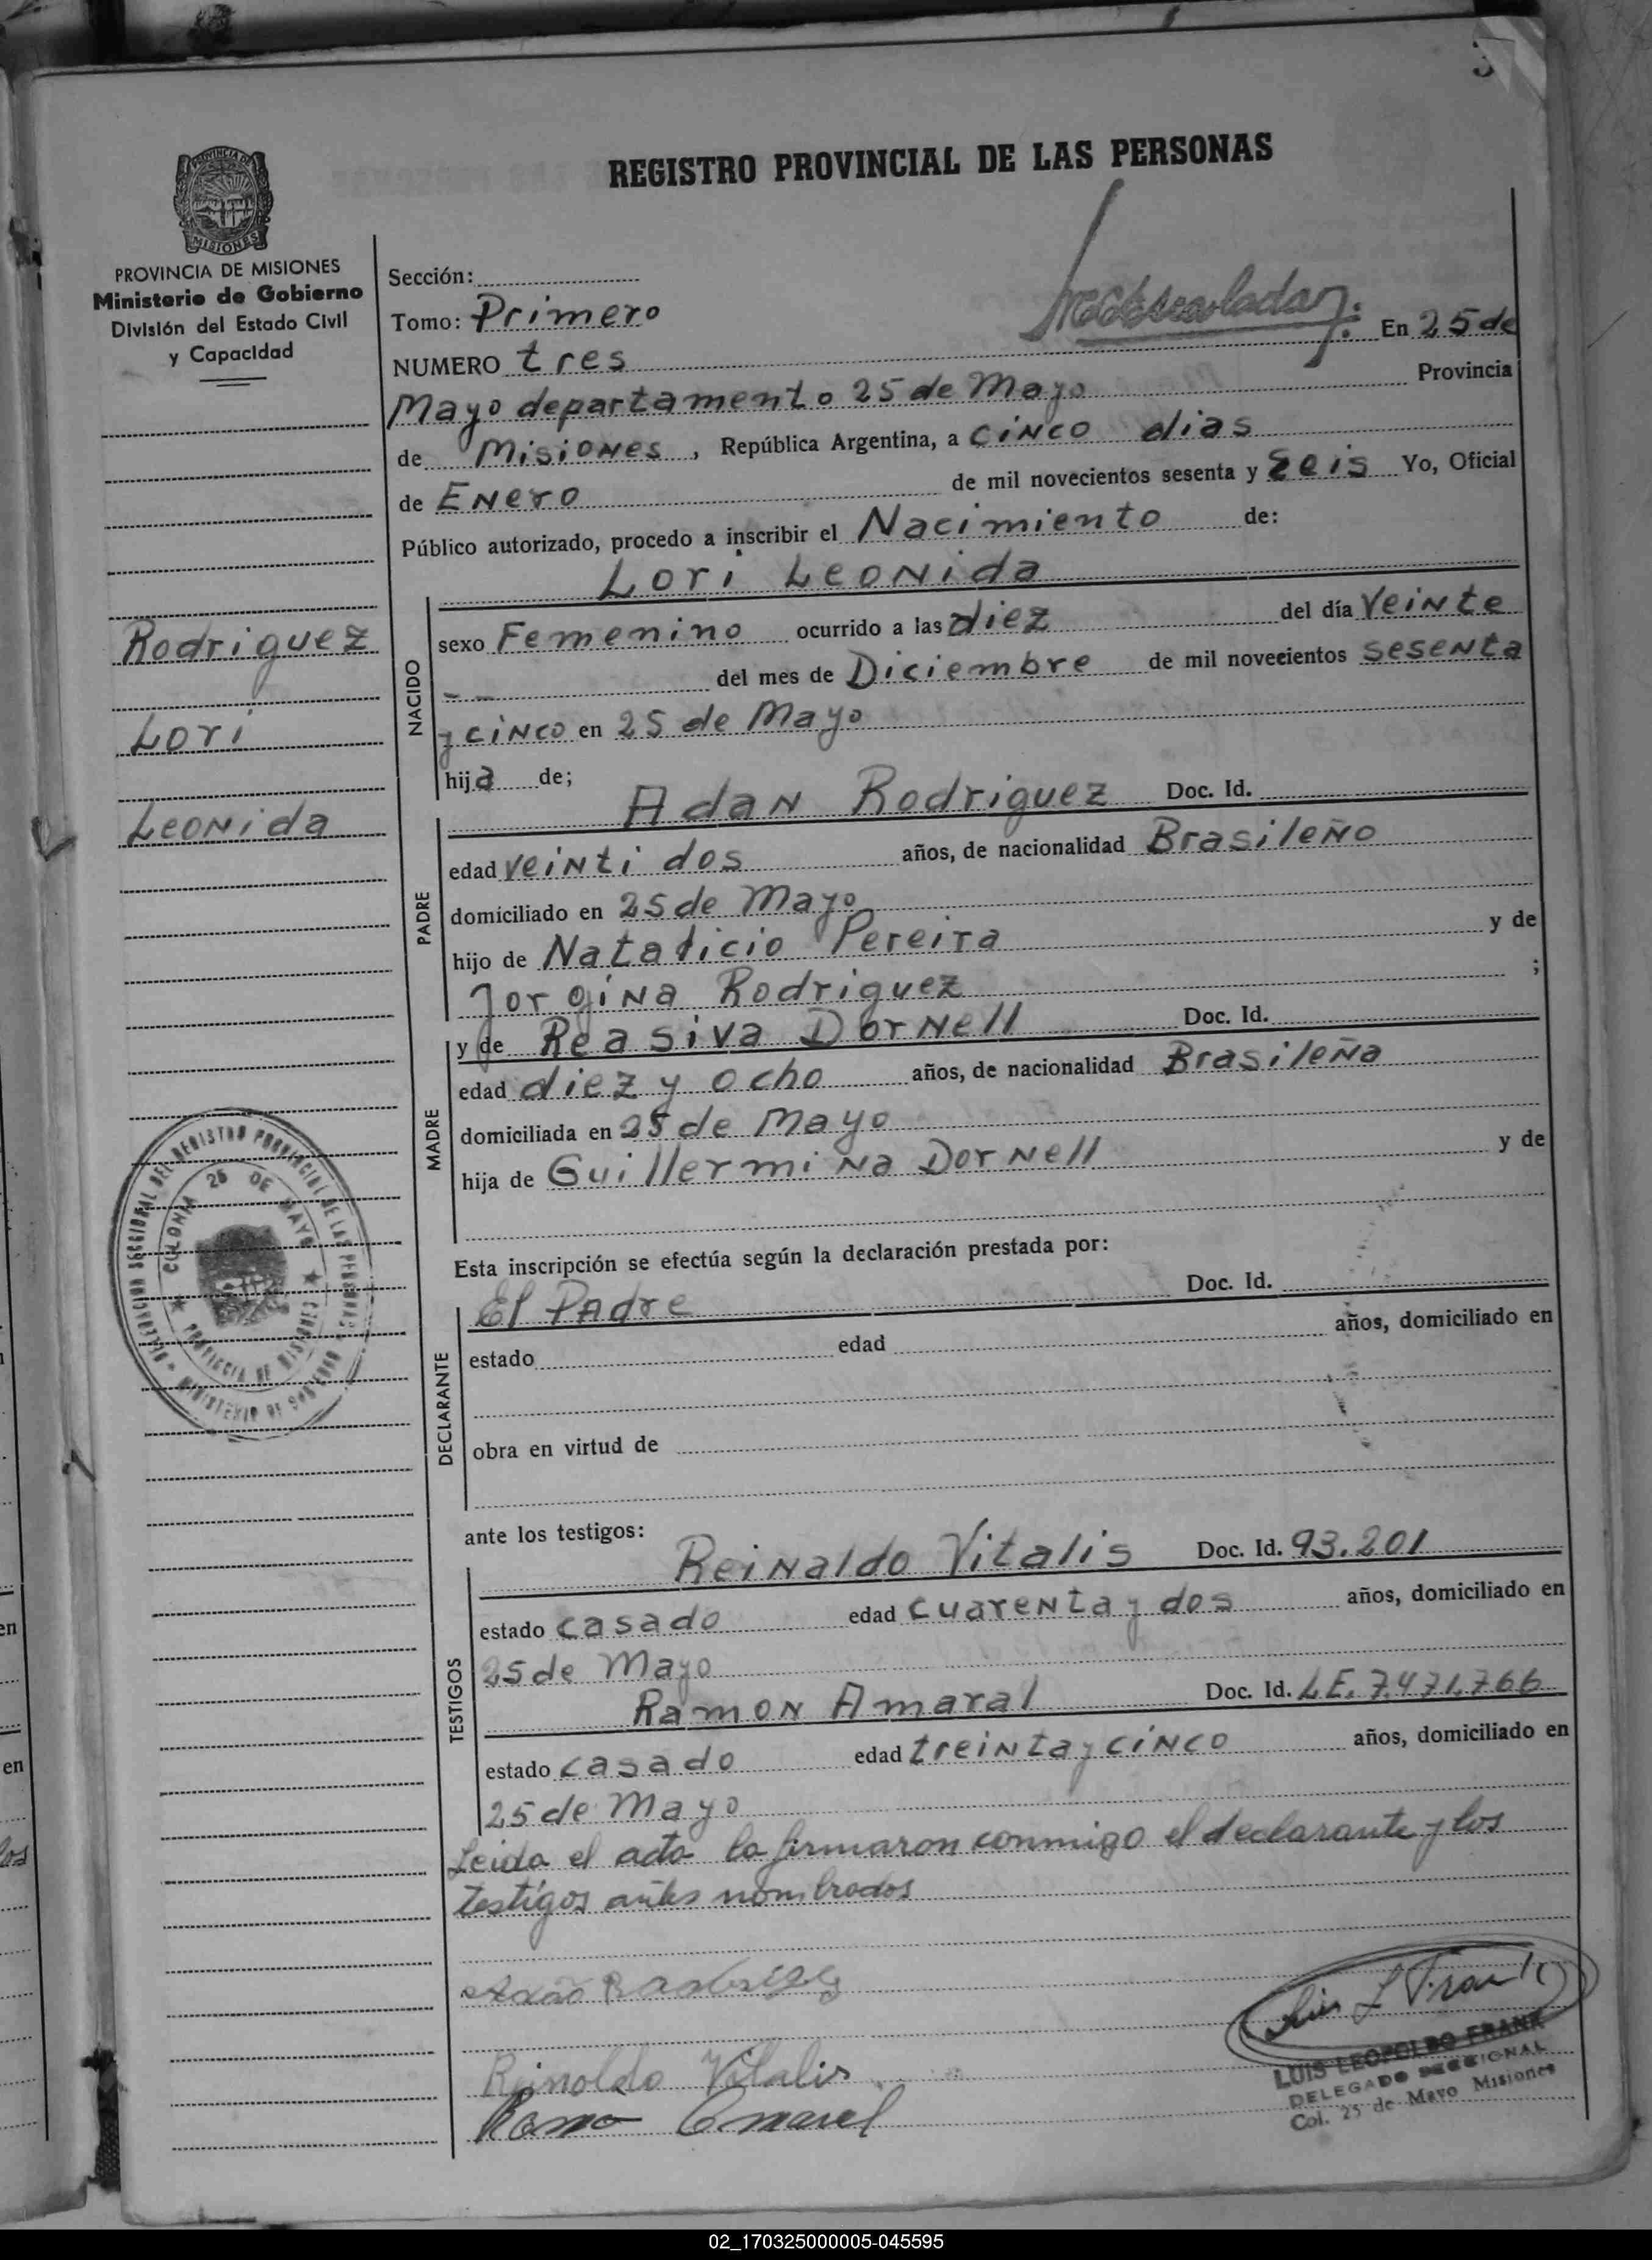 3
REGISTRO PROVINCIAL DE LAS PERSONAS
PROVINCIA DE
MISIONES
PROVINCIA DE MISIONES
Ministerio de Gobierno
División del Estado Civil
y Capacidad
Sección:
Tomo: Primero
NUMERO tres En 25 de
Mayo departamento 25 de Mayo Provincia
de Misiones, República Argentina, a cinco dias
de Enero de mil novecientos sesenta y Seis Yo, Oficial
Público autorizado, procedo a inscribir el Nacimiento de:
Lori Leonida
NACIDO
sexo Femenino ocurrido a las diez del día Veinte
-- del mes de Diciembre de mil novecientos sesenta
y cinco en 25 de Mayo
hija de;
Rodriguez
Lori
Leonida
Adan Rodriguez Doc. Id.
PADRE
edad veinti dos años, de nacionalidad Brasileño
domiciliado en 25 de Mayo
hijo de Natalicio Pereira y de
Jorgina Rodriguez ;
y de Reasiva Dornell Doc. Id.
MADRE
edad diez y ocho años, de nacionalidad Brasileña
domiciliada en 25 de Mayo
hija de Guillermina Dornell y de
DELEGACION SECCIONAL DEL REGISTRO PROVINCIAL DE LAS PERSONAS
MINISTERIO DE GOBIERNO
COLONIA 25 DE MAYO
PROVINCIA DE MISIONES
Esta inscripción se efectúa según la declaración prestada por:
El Padre Doc. Id.
DECLARANTE
estado edad años, domiciliado en
obra en virtud de
ante los testigos:
Reinaldo Vitalis Doc. Id. 93.201
TESTIGOS
estado casado edad cuarenta y dos años, domiciliado en
25 de Mayo
Ramon Amaral Doc. Id. L.E. 7.471.766
estado casado edad treinta y cinco años, domiciliado en
25 de Mayo
Leida el acta la firmaron conmigo el declarante y los
testigos antes nombrados
Reinoldo Vitalis
LUIS LEOPOLDO FRANK
DELEGADO SECCIONAL
Col. 25 de Mayo Misiones
en
en
los
02_170325000005-045595